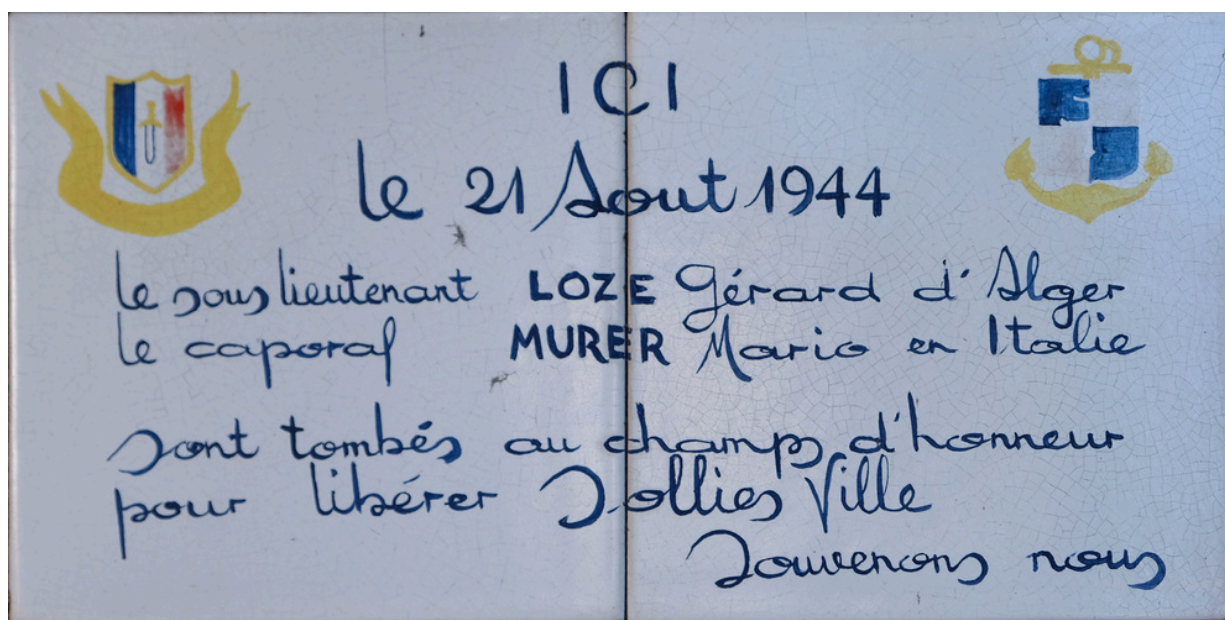 ICI
le 21 Aout 1944
le sous lieutenant LOZE Gérard d'Alger
le caporal MURER Mario en Italie
sont tombés au champs d'honneur
pour libérer Sollies Ville
Souvenons nous